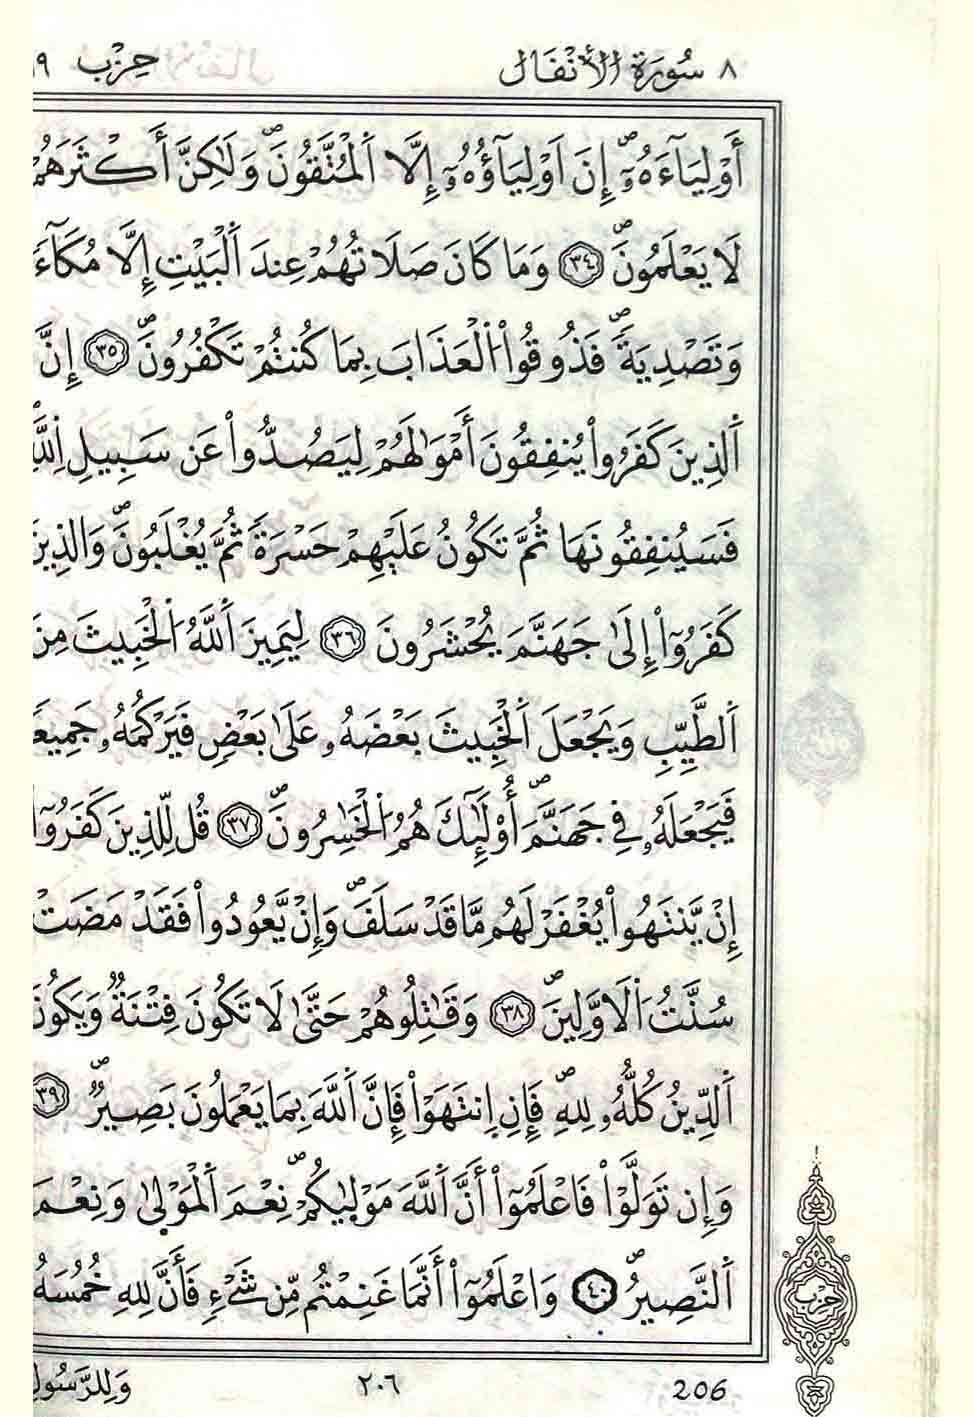 ٨ سُورَةُ الْأَنْفَال حِزْب ١٩
أَوْلِيَآءَهُۥٓۖ إِنَ اَوْلِيَآؤُهُۥٓ إِلَّا اَ۬لْمُتَّقُونَۖ وَلَٰكِنَّ أَكْثَرَهُمْ
لَا يَعْلَمُونَۖ ٣٤ وَمَا كَانَ صَلَاتُهُمْ عِندَ اَ۬لْبَيْتِ إِلَّا مُكَآءٗ
وَتَصْدِيَةٗۖ فَذُوقُواْ اُ۬لْعَذَابَ بِمَا كُنتُمْ تَكْفُرُونَۖ ٣٥ إِنَّ
اَ۬لذِينَ كَفَرُواْ يُنفِقُونَ أَمْوَٰلَهُمْ لِيَصُدُّواْ عَن سَبِيلِ اِ۬للَّهِ
فَسَيُنفِقُونَهَا ثُمَّ تَكُونُ عَلَيْهِمْ حَسْرَةٗ ثُمَّ يُغْلَبُونَۖ وَالذِينَ
كَفَرُوٓاْ إِلَىٰ جَهَنَّمَ يُحْشَرُونَ ٣٦ لِيَمِيزَ اَ۬للَّهُ اُ۬لْخَبِيثَ مِنَ
اَ۬لطَّيِّبِ وَيَجْعَلَ اَ۬لْخَبِيثَ بَعْضَهُۥ عَلَىٰ بَعْضٖ فَيَرْكُمَهُۥ جَمِيعاٗ
فَيَجْعَلَهُۥ فِي جَهَنَّمَۖ أُوْلَٰٓئِكَ هُمُ اُ۬لْخَٰسِرُونَۖ ٣٧ قُل لِّلذِينَ كَفَرُوٓاْ
إِنْ يَّنتَهُواْ يُغْفَرْ لَهُم مَّا قَدْ سَلَفَۖ وَإِنْ يَّعُودُواْ فَقَدْ مَضَتْ
سُنَّتُ اُ۬لَاوَّلِينَۖ ٣٨ وَقَٰتِلُوهُمْ حَتَّىٰ لَا تَكُونَ فِتْنَةٞ وَيَكُونَ
اَ۬لدِّينُ كُلُّهُۥ لِلهِۖ فَإِنِ اِ۪نتَهَوْاْ فَإِنَّ اَ۬للَّهَ بِمَا يَعْمَلُونَ بَصِيرٞۖ ٣٩
وَإِن تَوَلَّوْاْ فَاعْلَمُوٓاْ أَنَّ اَ۬للَّهَ مَوْلَىٰكُمْۖ نِعْمَ اَ۬لْمَوْلَىٰ وَنِعْمَ
اَ۬لنَّصِيرُۖ ٤٠ وَاعْلَمُوٓاْ أَنَّمَا غَنِمْتُم مِّن شَےْءٖ فَأَنَّ لِلهِ خُمُسَهُۥ
حِزْب
وَلِلرَّسُولِ ٢٠٦ 206